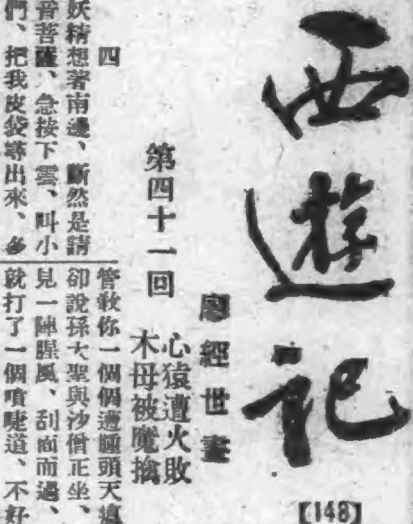 西遊記
【148】
廖經世畫
第四十一回
心猿遭火敗
木母被魔擒
四
妖精想著南邊、斷然是請
音菩薩、急按下雲、叫小
們、把我皮袋尋出來、多
管教你一個個遭腫頭天
卻說孫大聖與沙僧正坐、
見一陣腥風、刮面而過、
就打了一個噴嚏道、不好